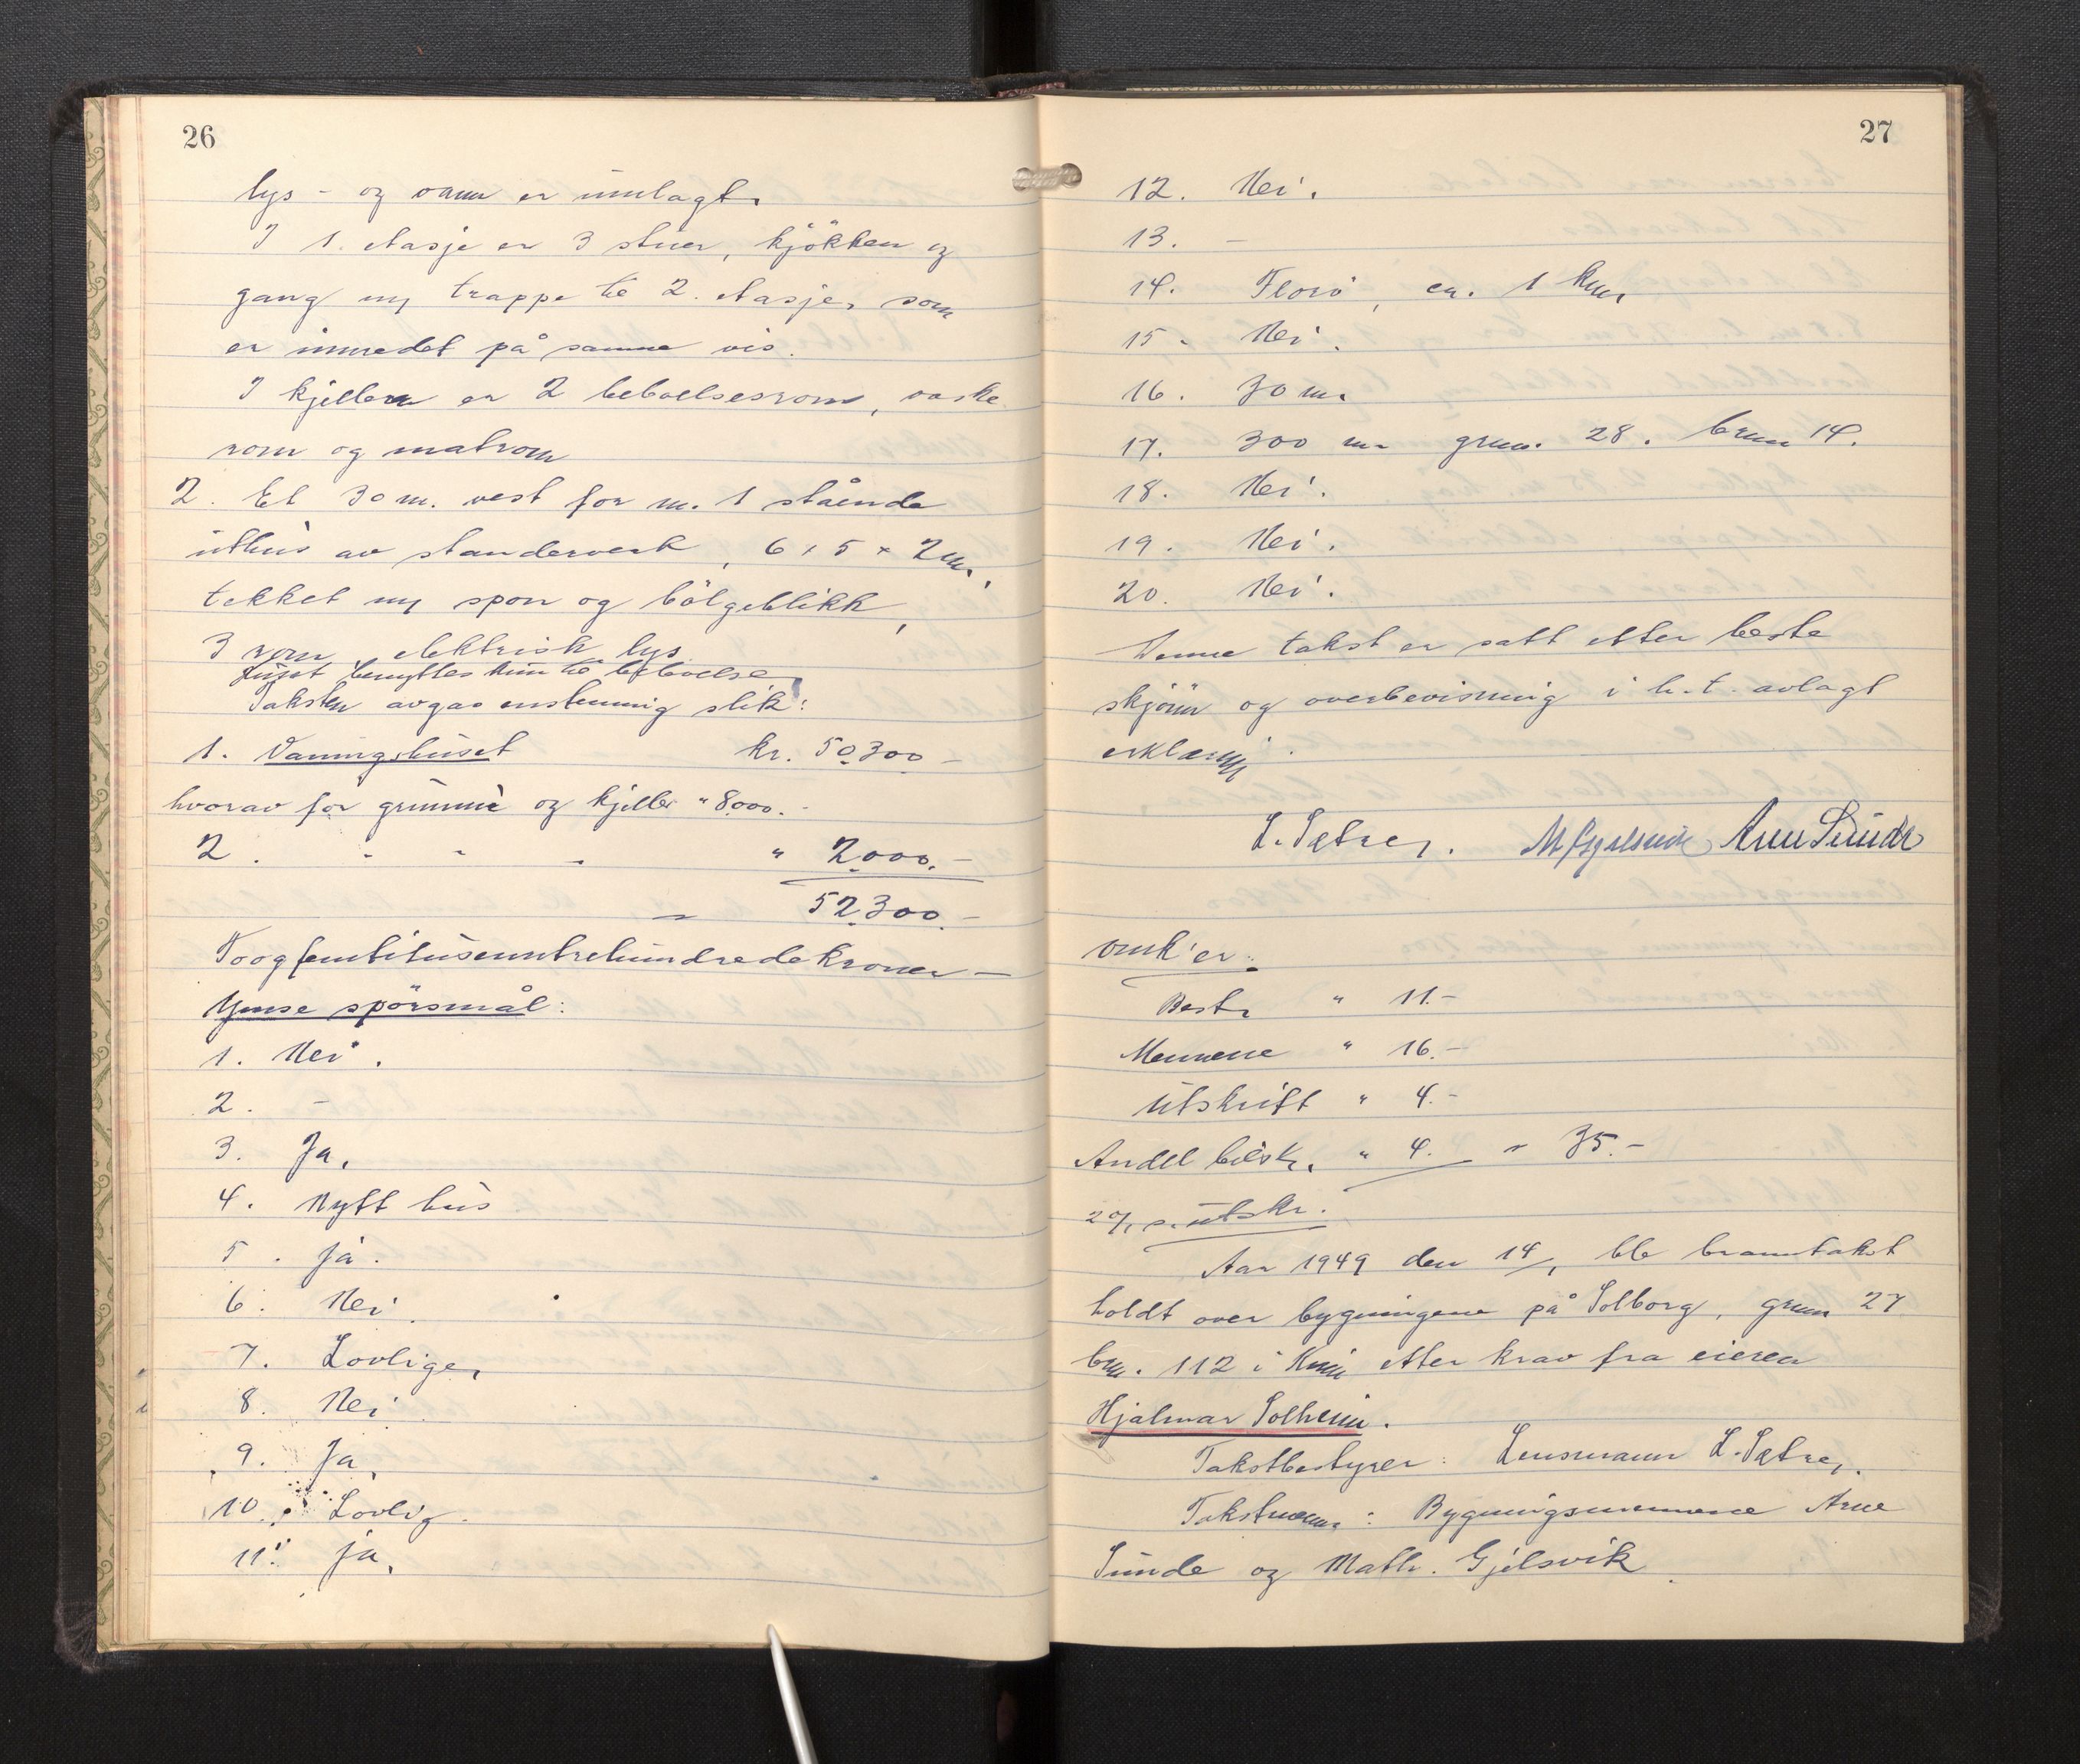 26
lys - og vann er innlagt.
I 1. etasje er 3 stuer, kjökken og
gang m/ trappe til 2. etasje, som
er innredet på samme vis.
I kjelleren er 2 beboelsesrom, vaske
rom og matrom
2. Et 30 m. vest for nr. 1 stående
uthus av standerverk, 6 x 5 x 2 m,
tekket m/ spon og bölgeblikk,
3 rom, elektrisk lys
Huset benyttes kun til beboelse
Taksten avgas enstemmig slik:
1. Vaningshuset kr. 50.300 -
hvorav for grunnmur og kjeller " 8000.-
2. - - - " 2000.-
52.300.-
Toogfemtitusenntrehundredekroner -
Ymse spörsmål:
1. Nei.
2. -
3. Ja.
4. Nytt hus
5. ja.
6. Nei.
7. Lovlige.
8. Nei
9. Ja.
10. Lovlig.
11. ja.
27
12. Nei.
13. -
14. Florö, ca. 1 km.
15. Nei.
16. 30 m.
17. 300 m. grnr. 28. brnr 14.
18. Nei.
19. Nei.
20. Nei.
Denne takst er satt etter beste
skjönn og overbevisning i h.t. avlagt
erklæring.
L. Sætre. M Gjelsvik Arne Sunde
omk'er:
Best. " 11.-
Mennene " 16.-
Utskrift " 4.-
Andel bilsk. " 4. " 35.-
utskr.
Aar 1949 den 14/1 ble branntakst
holdt over bygningene på Solborg, grnr 27
brnr. 112 i Kinn etter krav fra eieren
Hjalmar Solheim.
Takstbestyrer: Lensmann L. Sætre.
Takstmenn: Bygningsmennene Arne
Sunde og Math. Gjelsvik